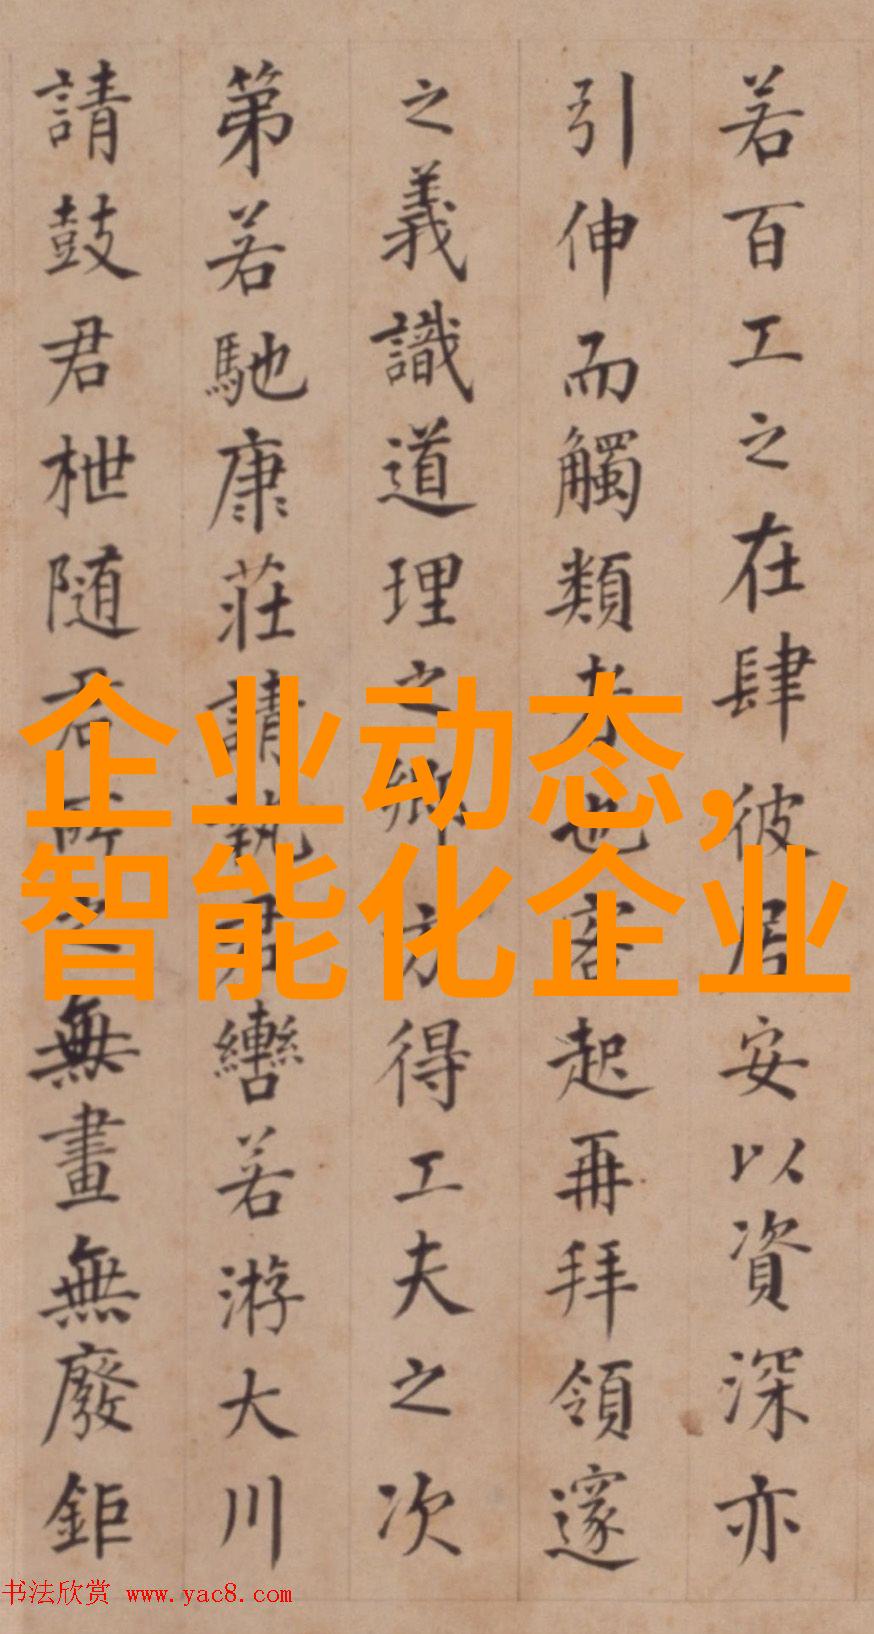 若百工之在肆彼居安以資深亦
引伸而觸類者也客起再拜領邃
之義識道理之鄉方得工夫之次
第若馳康莊請執君轡若游大川
請鼓君枻随君所之無畫無廢鉅
企业动态,
智能化企业
书法欣赏 www.yac8.com